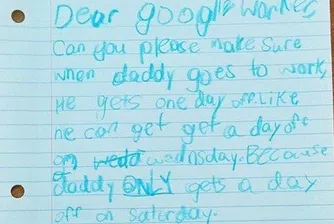 Dear google worker
Can you please make sure
when daddy goes to work,
He gets one day off. Like
he can get get a day off
on wedd wednsday. Because
daddy ONLY gets a day
off on Saturday.